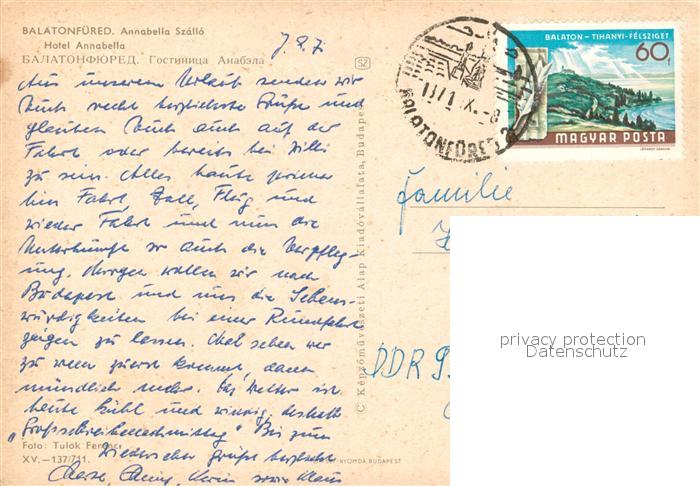 BALATONFÜRED. Annabella Szálló
Hotel Annabella
БАЛАТОНФЮРЕД. Гостиница Анабэла
Aus unserem Urlaub senden wir
Euch recht herzlichste Grüße und
glauben Euch auch auf der
Fahrt oder bereits bei Willi
zu sein. Alles heute prima
hin Fahrt, Zoll, Flug und
wieder Fahrt und nun die
Unterkünfte so auch die Verpfleg-
ung. Morgen wollen wir nach
Budapest und uns die Sehens-
würdigkeiten bei einer Rundfahrt
zeigen zu lassen. Mal sehen wer
zu wem zuerst kommt, dann
mündlich mehr. Das Wetter ist
heute kühl und windig, deshalb
„Großschreibenachmittag" Bis zum
Wiedersehen Grüße herzlichst
sowie Klaus
Foto: Tulok Ferenc
XV.—137/711.
SZ
© Képzőművészeti Alap Kiadóvállalata, Budapest
NYOMDA, BUDAPEST
BALATONFÜRED
BALATON – TIHANYI-FÉLSZIGET
60f
MAGYAR POSTA
Familie
DDR 9
privacy protection
Datenschutz